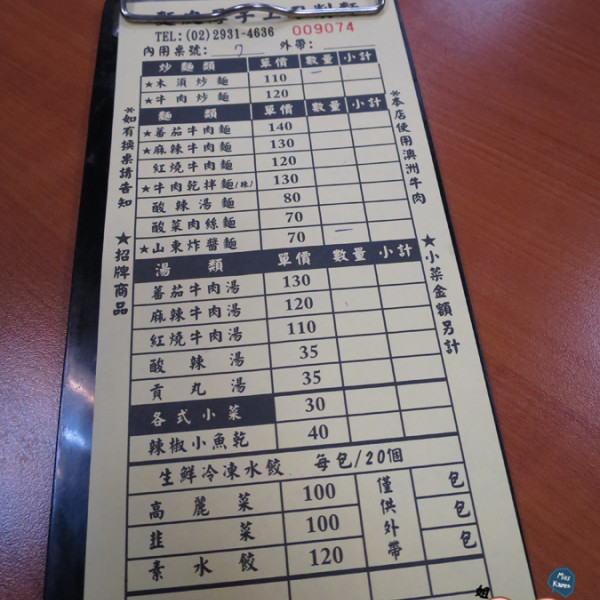 TEL:(02)2931-4636 009074
內用桌號: 7 外帶:
炒麵類 單價 數量 小計
★木須炒麵 110
★牛肉炒麵 120
麵類 單價 數量 小計
★蕃茄牛肉麵 140
★麻辣牛肉麵 130
紅燒牛肉麵 120
★牛肉乾拌麵(辣) 130
酸辣湯麵 80
酸菜肉絲麵 70
★山東炸醬麵 70
湯類 單價 數量 小計
蕃茄牛肉湯 130
麻辣牛肉湯 120
紅燒牛肉湯 110
酸辣湯 35
貢丸湯 35
各式小菜 30
辣椒小魚乾 40
生鮮冷凍水餃 每包/20個
高麗菜 100 包
韭菜 100 包
素水餃 120 包
僅供外帶
*如有換桌請告知
★招牌商品
*本店使用澳洲牛肉
★小菜金額另計
姐
Miss Karen